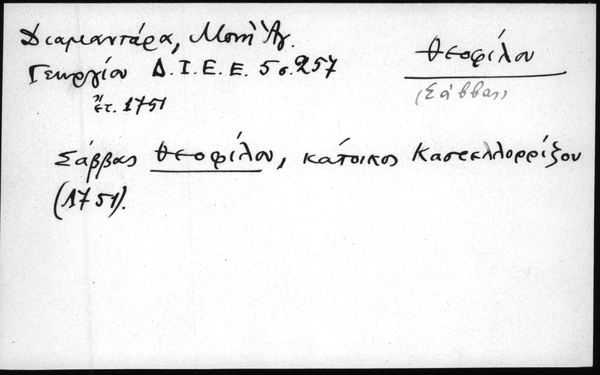 Διαμαντάρα, Μονή Ἁγ.
Γεωργίου Δ.Ι.Ε.Ε. 5 σ. 257
ἔτ. 1751
Θεοφίλου
(Σάββας)
Σάββας Θεοφίλου, κάτοικος Καστελλορρίζου
(1751).